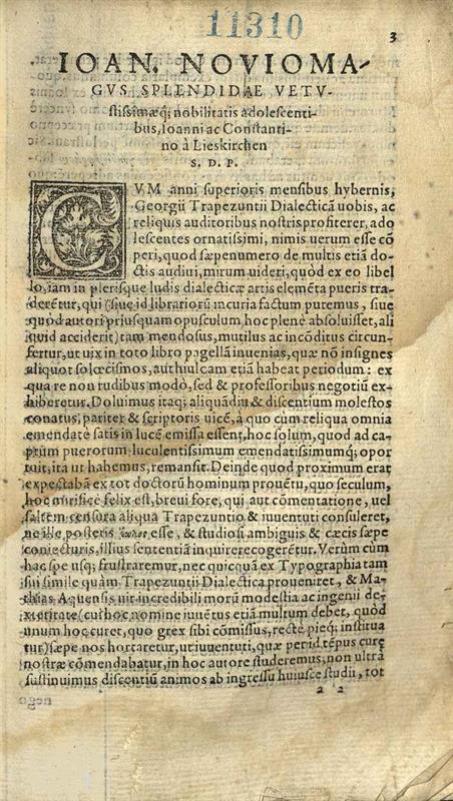 11310
3
IOAN. NOVIOMA-
GVS SPLENDIDAE VETV-
stissimæq́; nobilitatis adolescenti-
bus, Ioanni ac Constanti-
no à Lieskirchen
S. D. P.
CVM anni superioris mensibus hybernis,
Georgii Trapezuntii Dialecticā uobis, ac
reliquis auditoribus nostris profiterer, ado
lescentes ornatissimi, nimis uerum esse cō
peri, quod sæpenumero de multis etiā do-
ctis audiui, mirum uideri, quòd ex eo libel
lo, iam in plerisque ludis dialecticæ artis elemēta pueris tra-
derētur, qui (siue id librariorū incuria factum putemus, siue
quòd autori priusquam opusculum hoc plenè absoluisset, ali
quid acciderit) tam mendosus, mutilus ac incōditus circun-
fertur, ut uix in toto libro pagellā inuenias, quæ nō insignes
aliquot solœcismos, aut hiulcam etiā habeat periodum: ex
qua re non rudibus modò, sed & professoribus negotiū ex-
hiberetur. Doluimus itaq; aliquādiu & discentium molestos
conatus, pariter & scriptoris uicē, à quo cùm reliqua omnia
emendatè satis in lucē emissa essent, hoc solum, quod ad ca-
ptum puerorum luculentissimum emendatissimumq́; opor
tuit, ita ut habemus, remansit. Deinde quod proximum erat
expectabā ex tot doctorū hominum prouētu, quo seculum,
hoc mirificè felix est, breui fore, qui aut cōmentatione, uel
saltem censura aliqua Trapezuntio & iuuentuti consuleret,
ne ille posteris esse, & studiosi ambiguis & cæcis sæpe
coniecturis, illius sententiā inquirere cogerētur. Verùm cùm
hac spe usq; frustraremur, nec quicquā ex Typographia tam
sui simile quàm Trapezuntii Dialectica proueniret, & Ma-
thias Aquensis uir incredibili morū modestia ac ingenii de-
xteritate (cui hoc nomine iuuētus etiā multum debet, quòd
unum hoc curet, quo grex sibi cōmissus, rectè pieq́; institua
tur) sæpe nos hortaretur, ut iuuentuti, quæ per id tēpus curę
nostræ cōmendabatur, in hoc autore studeremus, non ultrà
sustinuimus discentiū animos ab ingressu huiusce studii, tot
a 2
nego